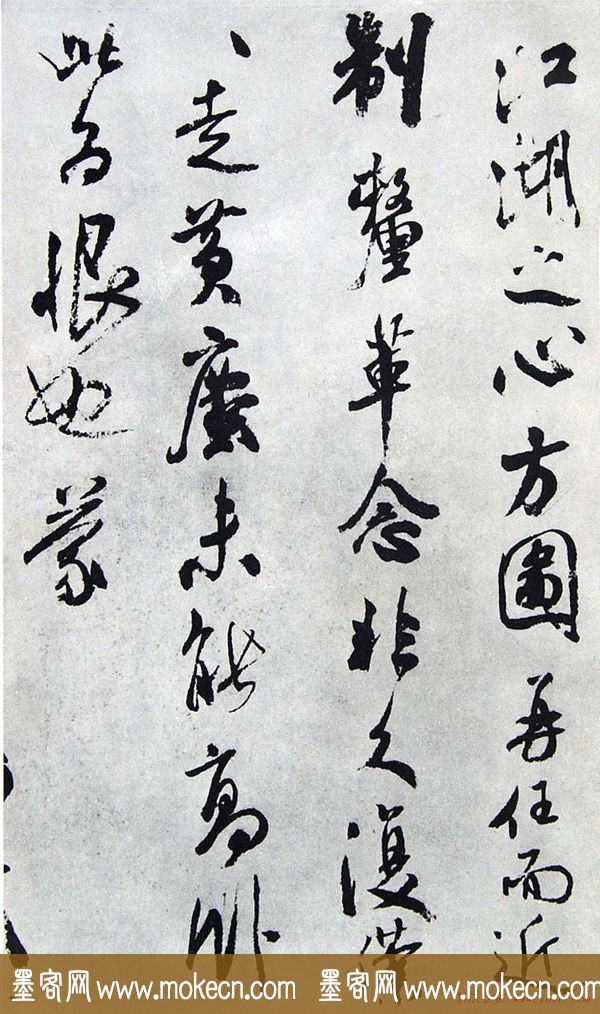 江湖之心方圖再任而近
制釐革念非久復
、走黃塵未能高臥
此為恨也蒙
墨客网 www.mokecn.com 墨客网 www.mokecn.com